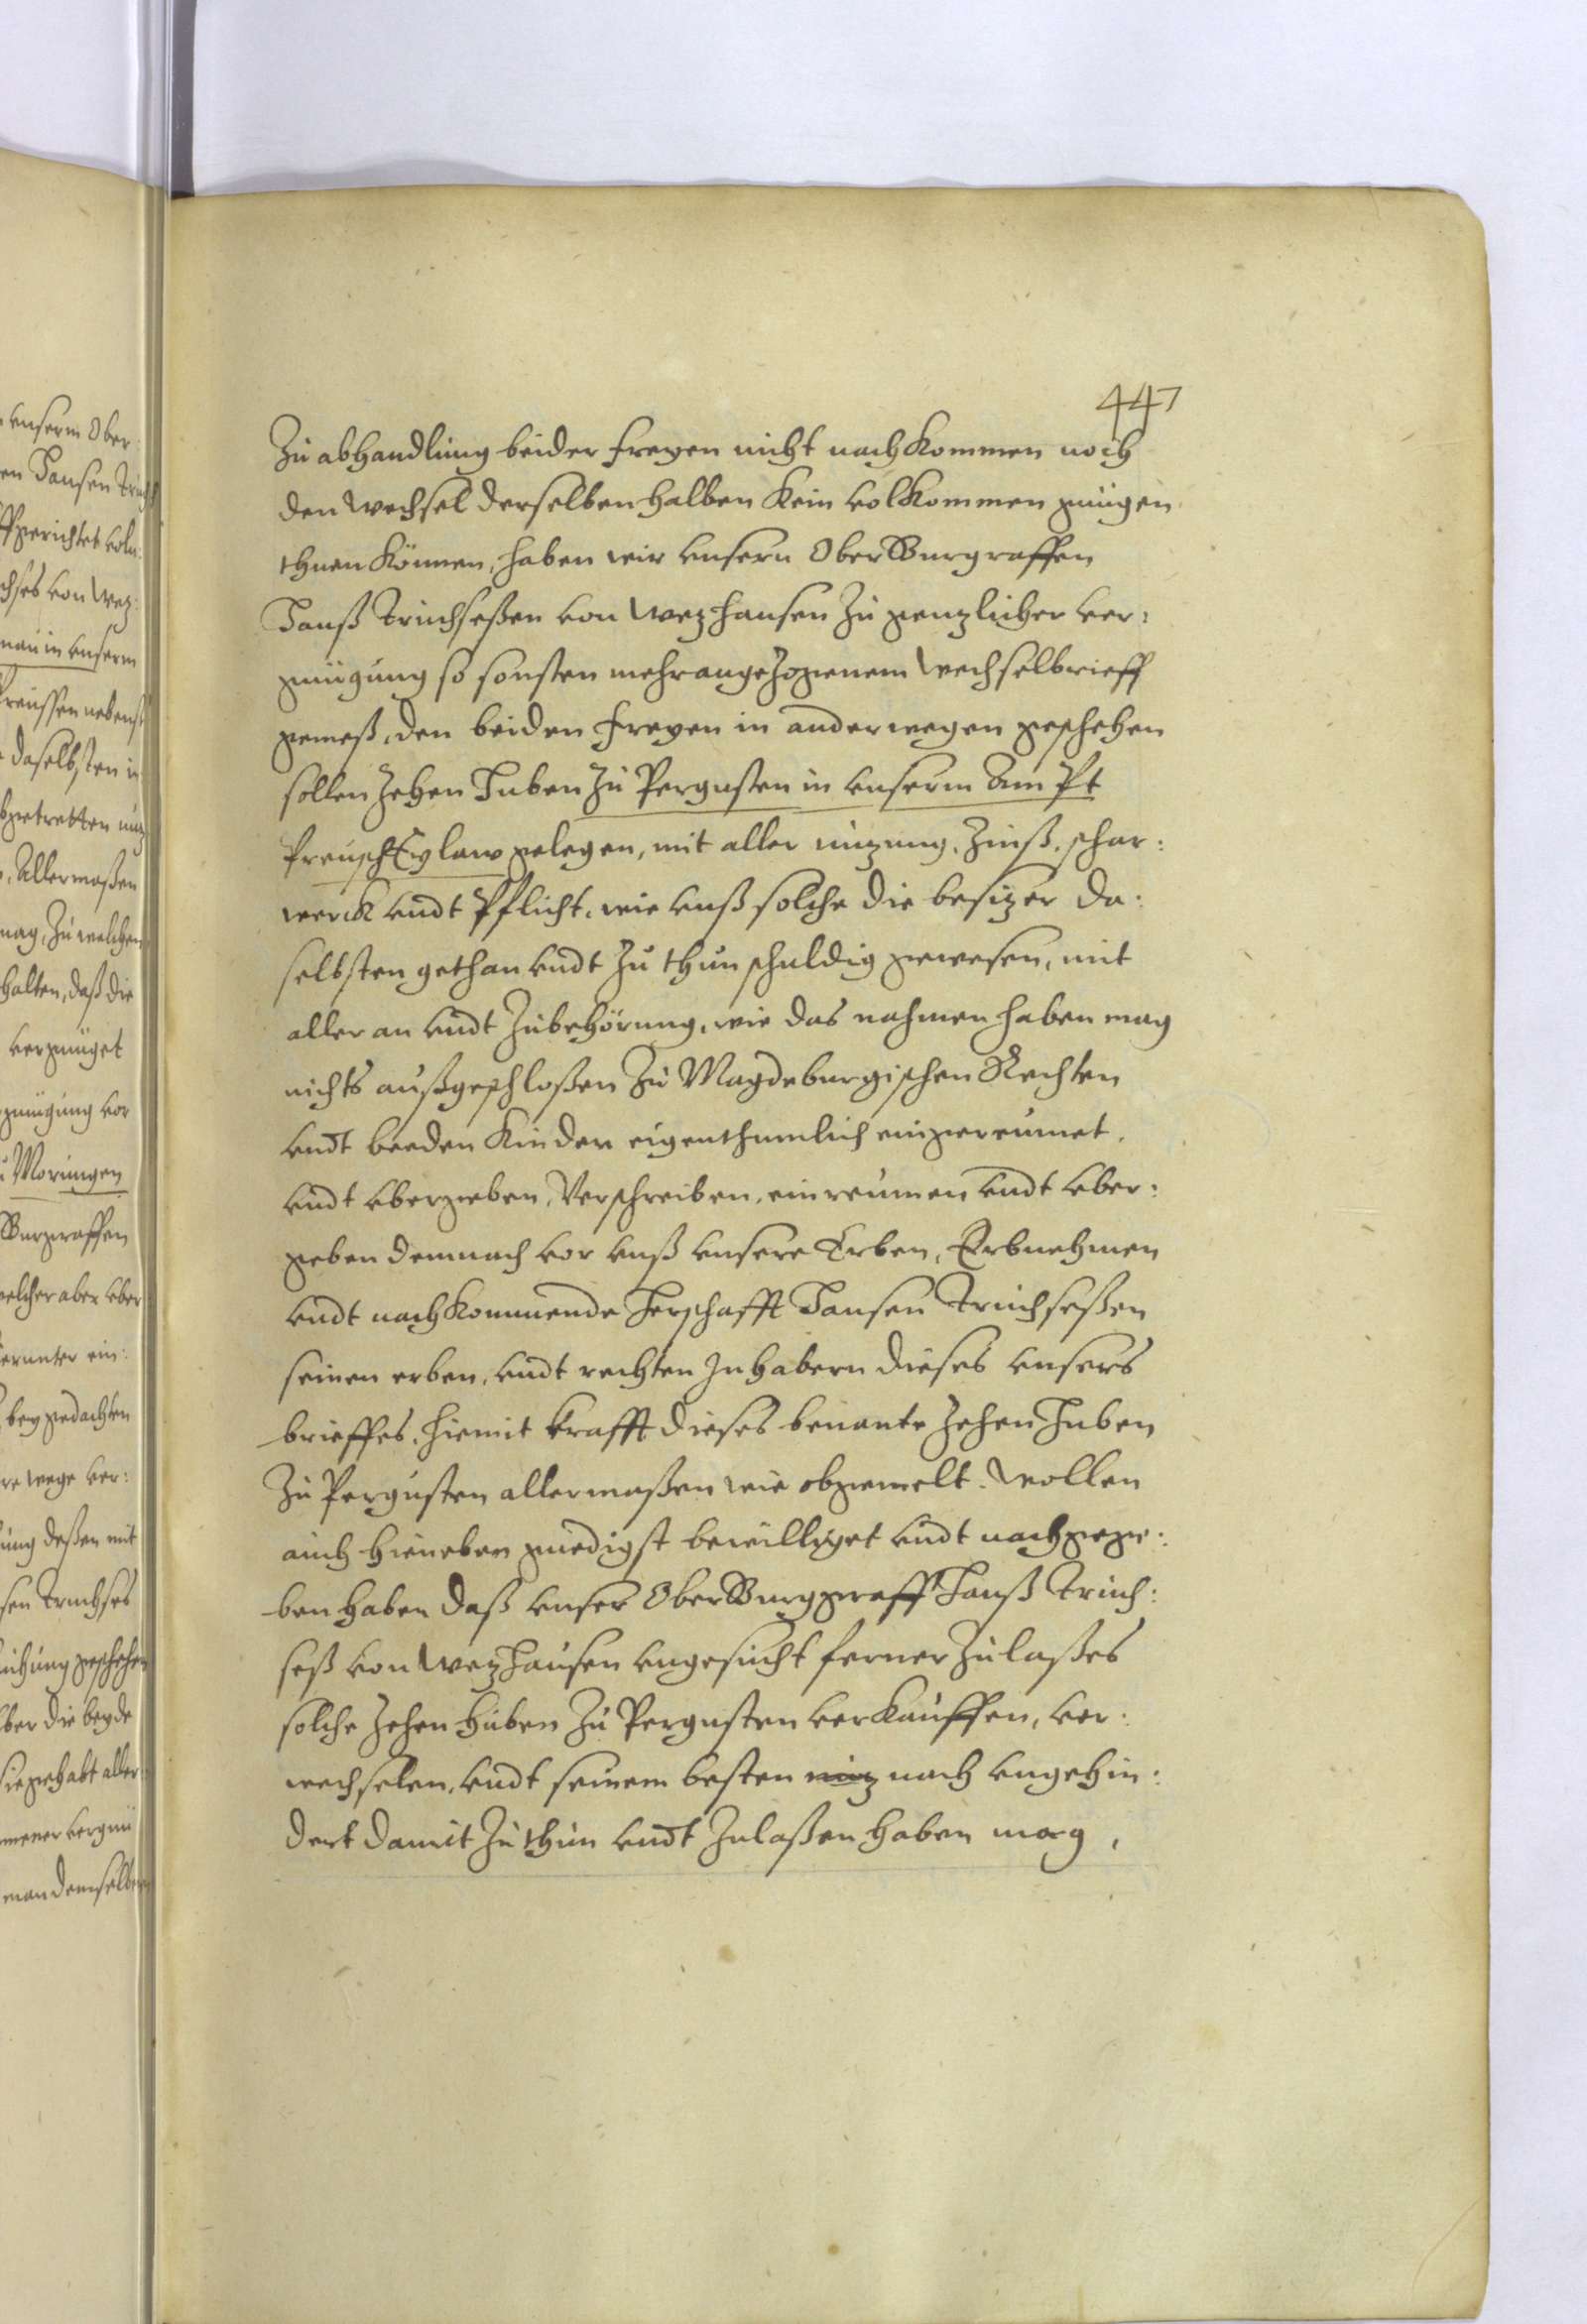 447
Zu abhandlung beider Freyen nicht nachkommen noch
den wechsel derselben halben kein volkommen gnügen
thuen können, haben wir vnsern OberBurgraffen
Hanß Truchseßen von Wezhausen zu genzlicher ver:
gnügung so sonsten mehrangezogenem Wechselbrieff
gemeß, den beiden Freyen in anderwegen geschehen
sollen Zehen Huben zu Pergusten in vnserm Ampt
PreuschEylaw gelegen, mit aller nuzung, Zinß, schar:
werck vndt Pflicht, wie vnß solche die besizer da:
selbsten gethan vndt zu thun schuldig gewesen, mit
aller an vndt Zubehörung, wie das nahmen haben mag
nichts außgeschloßen zu Magdeburgischen Rechten
vndt beeden Kinder eigenthumlich eingereumet,
vndt vbergeben, Verschreiben, einreumen vndt vber:
geben demnach vor vnß vnsere Erben, Erbnehmen
vndt nachkommende Herschafft Hansen Truchseßen
seinen erben, vndt rechten Inhabern dieses vnsers
brieffes, hiemit krafft dieses benante Zehen Huben
zu Pergusten allermaßen wie obgemelt. Wollen
auch hieneben gnedigst bewilliget vndt nachgege:
ben haben daß vnser OberBurggraff Hanß Truch:
seß von Wezhausen vngesucht ferner Zulaßes
solche Zehen Huben zu Pergusten verkauffen, ver:
wechselen, vndt seinem besten nuz nach vngehin:
dert damit zu thun vndt Zulaßen haben mag,